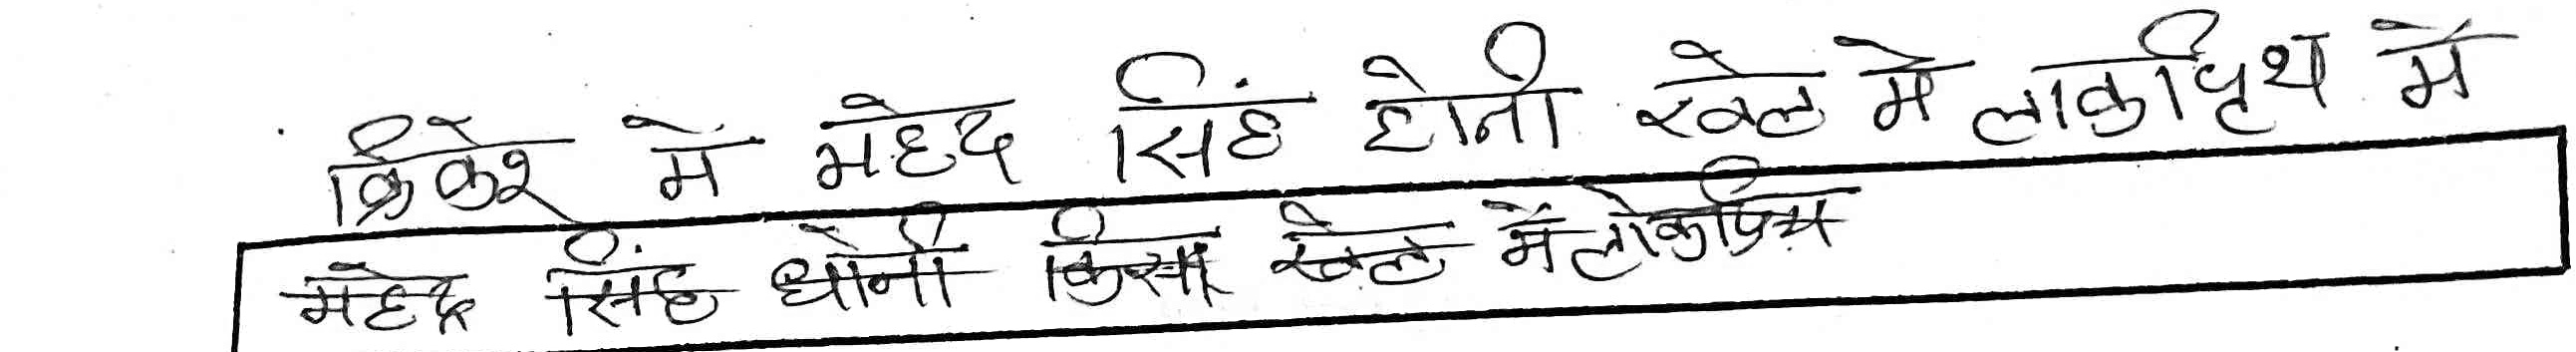 क्रिकेट में महेद सिंह होनी खेल मे लाकप्रिथ में
महेद्र सिंह धोनी किसी खेल में लोकप्रिय